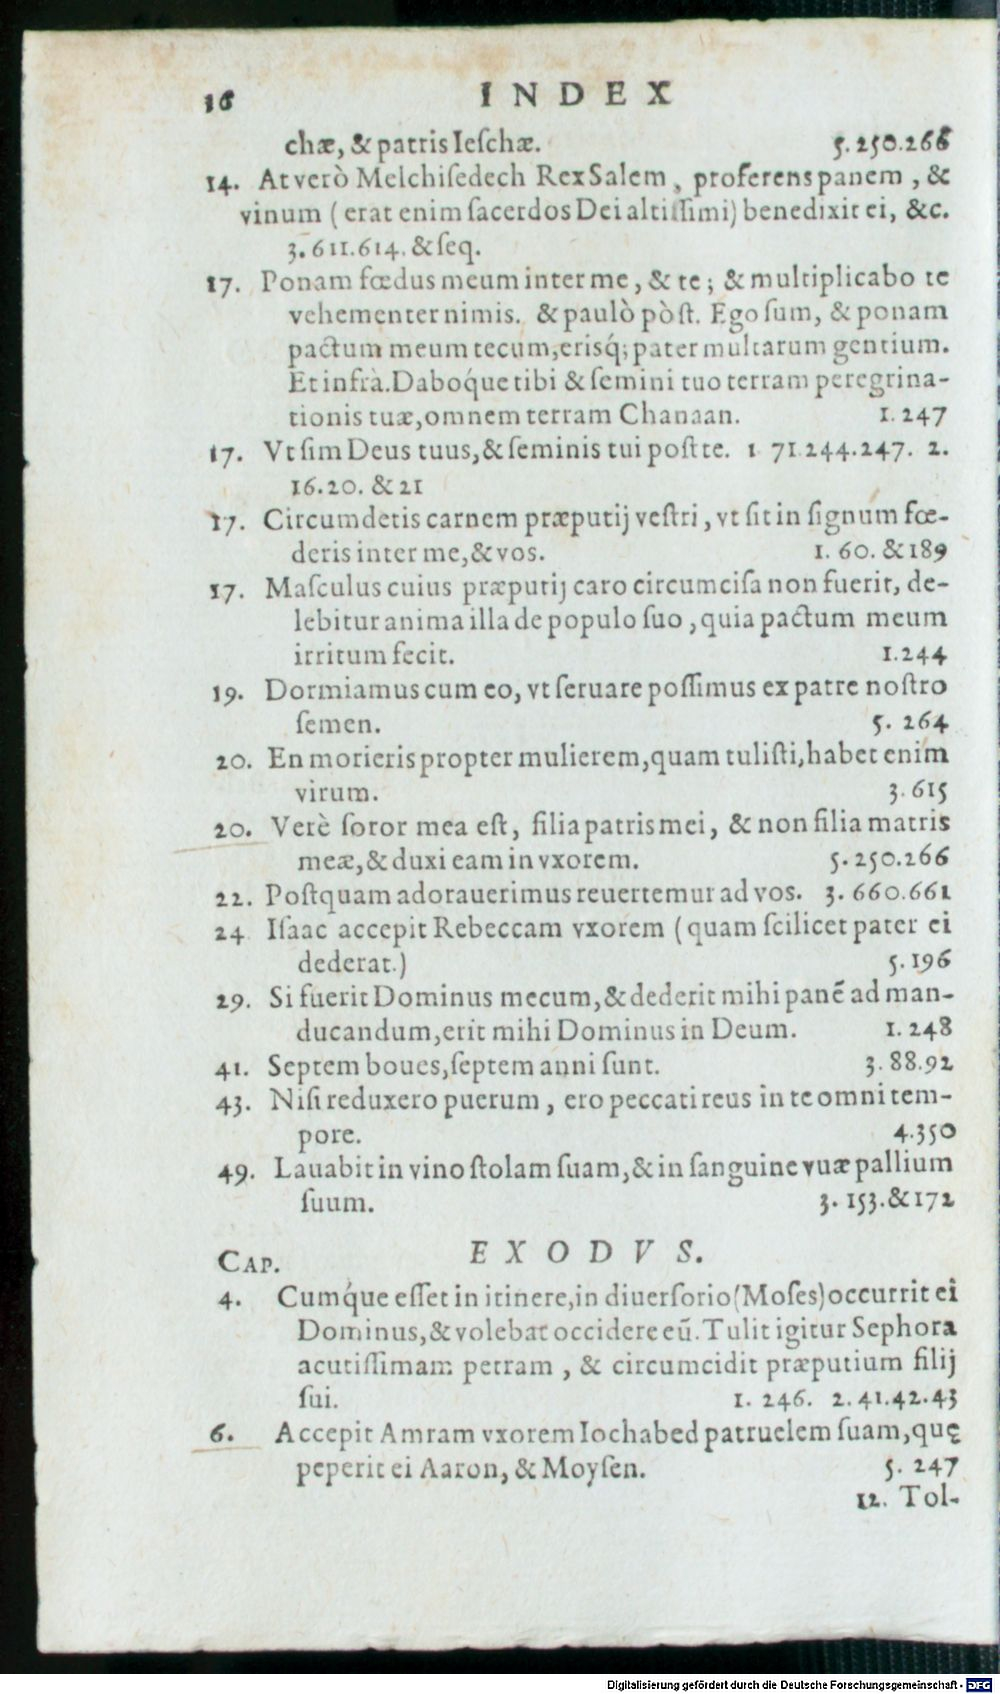 16 INDEX
chæ, & patris Ieſchæ. 5. 250.266
14. At verò Melchiſedech Rex Salem, proferens panem, &
vinum (erat enim ſacerdos Dei altiſſimi) benedixit ei, &c.
3. 611.614. & ſeq.
17. Ponam fœdus meum inter me, & te; & multiplicabo te
vehementer nimis. & paulò pòſt. Ego ſum, & ponam
pactum meum tecum, erisq́; pater multarum gentium.
Et infrà. Daboq́ue tibi & ſemini tuo terram peregrina-
tionis tuæ, omnem terram Chanaan. 1. 247
17. Vt ſim Deus tuus, & ſeminis tui poſt te. 1 71.244.247. 2.
16.20. & 21
17. Circumdetis carnem præputij veſtri, vt ſit in ſignum fœ-
deris inter me, & vos. 1. 60. & 189
17. Maſculus cuius præputij caro circumciſa non fuerit, de-
lebitur anima illa de populo ſuo, quia pactum meum
irritum fecit. 1.244
19. Dormiamus cum eo, vt ſeruare poſſimus ex patre noſtro
ſemen. 5. 264
20. En morieris propter mulierem, quam tuliſti, habet enim
virum. 3. 615
20. Verè ſoror mea eſt, filia patris mei, & non filia matris
meæ, & duxi eam in vxorem. 5. 250.266
22. Poſtquam adorauerimus reuertemur ad vos. 3. 660.661
24 Iſaac accepit Rebeccam vxorem (quam ſcilicet pater ei
dederat.) 5. 196
29. Si fuerit Dominus mecum, & dederit mihi panē ad man-
ducandum, erit mihi Dominus in Deum. 1. 248
41. Septem boues, ſeptem anni ſunt. 3. 88.92
43. Niſi reduxero puerum, ero peccati reus in te omni tem-
pore. 4.350
49. Lauabit in vino ſtolam ſuam, & in ſanguine vuæ pallium
ſuum. 3. 153. & 172
CAP. EXODVS.
4. Cumq́ue eſſet in itinere, in diuerſorio (Moſes) occurrit ei
Dominus, & volebat occidere eū. Tulit igitur Sephora
acutiſſimam petram, & circumcidit præputium filij
ſui. 1. 246. 2. 41.42.43
6. Accepit Amram vxorem Iochabed patruelem ſuam, quę
peperit ei Aaron, & Moyſen. 5. 247
12. Tol-
Digitalisierung gefördert durch die Deutsche Forschungsgemeinschaft - DFG